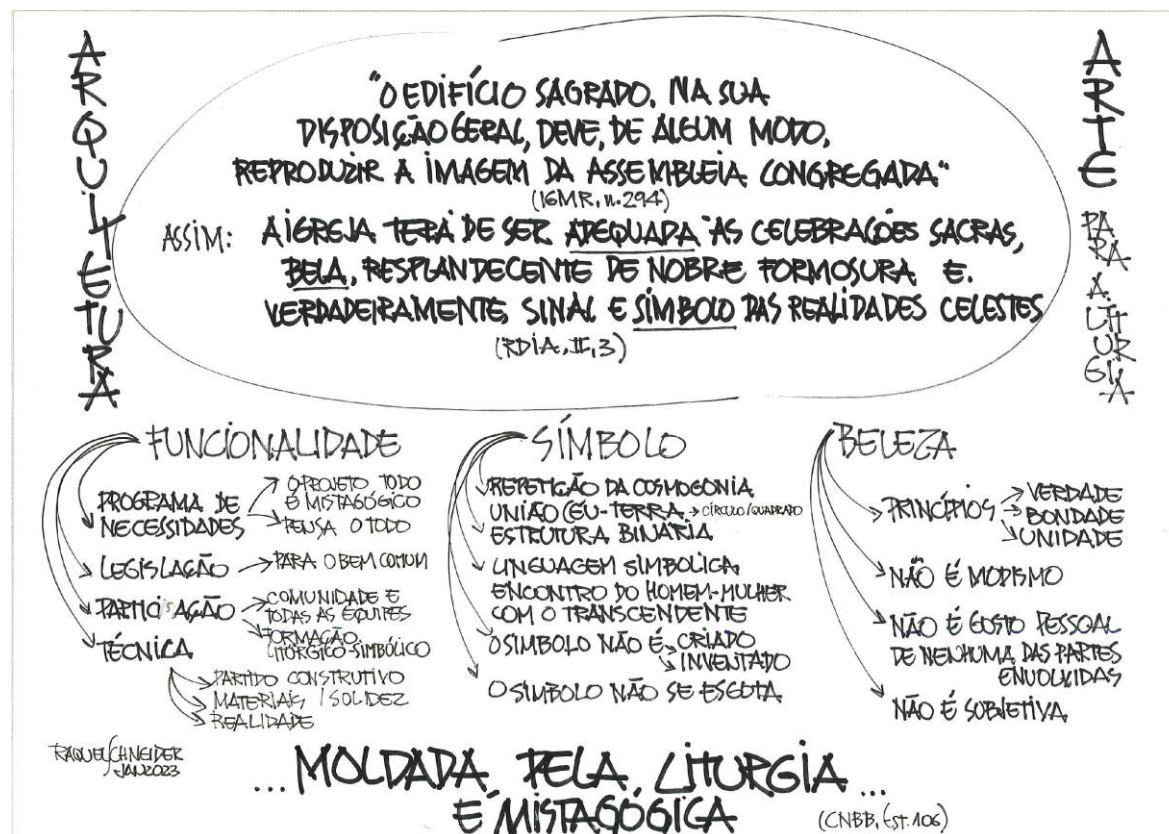 ARQUITETURA
"O EDIFÍCIO SAGRADO, NA SUA
DISPOSIÇÃO GERAL, DEVE, DE ALGUM MODO,
REPRODUZIR A IMAGEM DA ASSEMBLEIA CONGREGADA"
(IGMR, n.294)
ASSIM: A IGREJA TERÁ DE SER ADEQUADA ÀS CELEBRAÇÕES SACRAS,
BELA, RESPLANDECENTE DE NOBRE FORMOSURA E
VERDADEIRAMENTE SINAL E SÍMBOLO DAS REALIDADES CELESTES
(RDIA, II, 3)
ARTE PARA A LITURGIA
FUNCIONALIDADE
PROGRAMA DE NECESSIDADES
O PROJETO TODO
É MISTAGÓGICO
PENSA O TODO
LEGISLAÇÃO PARA O BEM COMUM
PARTICIPAÇÃO
COMUNIDADE E
TODAS AS EQUIPES
FORMAÇÃO
LITÚRGICO-SIMBÓLICO
TÉCNICA
PARTIDO CONSTRUTIVO
MATERIAIS / SOLIDEZ
REALIDADE
SÍMBOLO
REPETIÇÃO DA COSMOGONIA
UNIÃO CÉU-TERRA CÍRCULO/QUADRADO
ESTRUTURA BINÁRIA
LINGUAGEM SIMBÓLICA
ENCONTRO DO HOMEM-MULHER
COM O TRANSCENDENTE
O SÍMBOLO NÃO É CRIADO
INVENTADO
O SÍMBOLO NÃO SE ESGOTA
BELEZA
PRINCÍPIOS
VERDADE
BONDADE
UNIDADE
NÃO É MODISMO
NÃO É GOSTO PESSOAL
DE NENHUMA DAS PARTES
ENVOLVIDAS
NÃO É SUBJETIVA
RAQUEL SCHNEIDER
JAN2023
...MOLDADA PELA LITURGIA...
É MISTAGÓGICA
(CNBB, Est. 106)